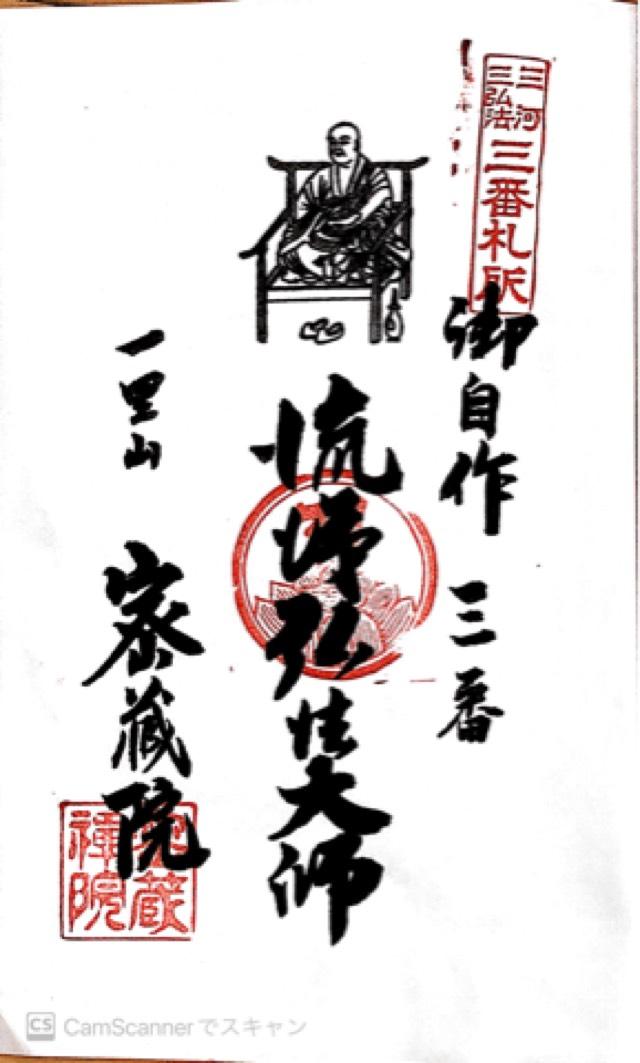 三河
三弘法
三番札所
御自作 三番
流涕弘法大師
一里山 密蔵院
密蔵
禅院
CS CamScannerでスキャン